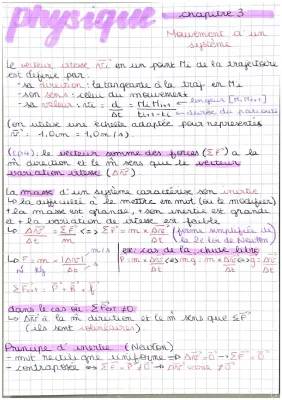 physique
chapitre 3
Mouvement d'un
système
Le vecteur vitesse v⃗i en un point Mi de la trajectoire
est définie par :
- sa direction : la tangente à la traj. en Mi
- son sens : celui du mouvement
- sa valeur : vi = d/Δt = MiMi+1/ti+1-ti → longueur [MiMi+1] → durée du parcours
(on utilise une échelle adaptée pour représenter
v⃗i : 1,0cm = 1,0m/s).
le vecteur somme des forces (ΣF⃗) a la
m̂ direction et le m̂ sens que le vecteur
variation vitesse (Δv⃗)
La masse d'un système caractérise son inertie
↳ la difficulté à le mettre en mvt (ou le modifier)
+ la masse est grande, + son inertie est grande
et + la variation de vitesse est faible.
↳ Δv⃗/Δt = ΣF⃗/m <=> ΣF⃗ = m × Δv⃗/Δt (forme simplifiée de la 2e loi de Newton)
↳ F = m × |Δv⃗|/Δt m/s
N kg
ex: cas de la chute libre
P⃗ = m × Δv⃗/Δt <=> m g⃗ = m × Δv⃗/Δt <=> g⃗ = Δv⃗/Δt
dans le cas où ΣF⃗ext ≠ 0⃗
↳ Δv⃗ a la m̂ direction et le m̂ sens que ΣF⃗
(ils sont colinéaires)
Principe d'inertie (Newton)
- mvt rectiligne uniforme => Δv⃗ = 0⃗ → ΣF⃗ = 0⃗
- contraposée <=> ΣF⃗ ≠ 0⃗ → Δv⃗ varie ≠ 0⃗